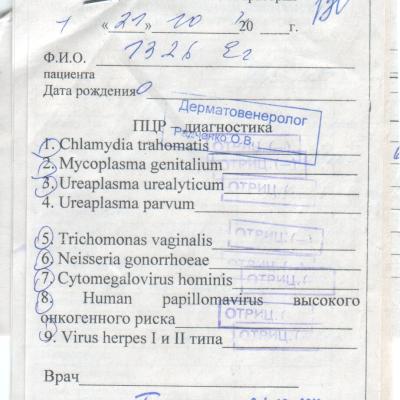 « 21 » 10 20 г.
Ф.И.О. 1326
пациента
Дата рождения
Дерматовенеролог
Радченко О.В.
ПЦР - диагностика
1. Chlamydia trahomatis ОТРИЦ. (—)
2. Mycoplasma genitalium ОТРИЦ. (—)
3. Ureaplasma urealyticum ОТРИЦ. (—)
4. Ureaplasma parvum
5. Trichomonas vaginalis ОТРИЦ. (—)
6. Neisseria gonorrhoeae ОТРИЦ. (—)
7. Cytomegalovirus hominis ОТРИЦ. (—)
8. Human papillomavirus высокого
онкогенного риска ОТРИЦ. (—)
9. Virus herpes I и II типа ОТРИЦ. (—)
Врач